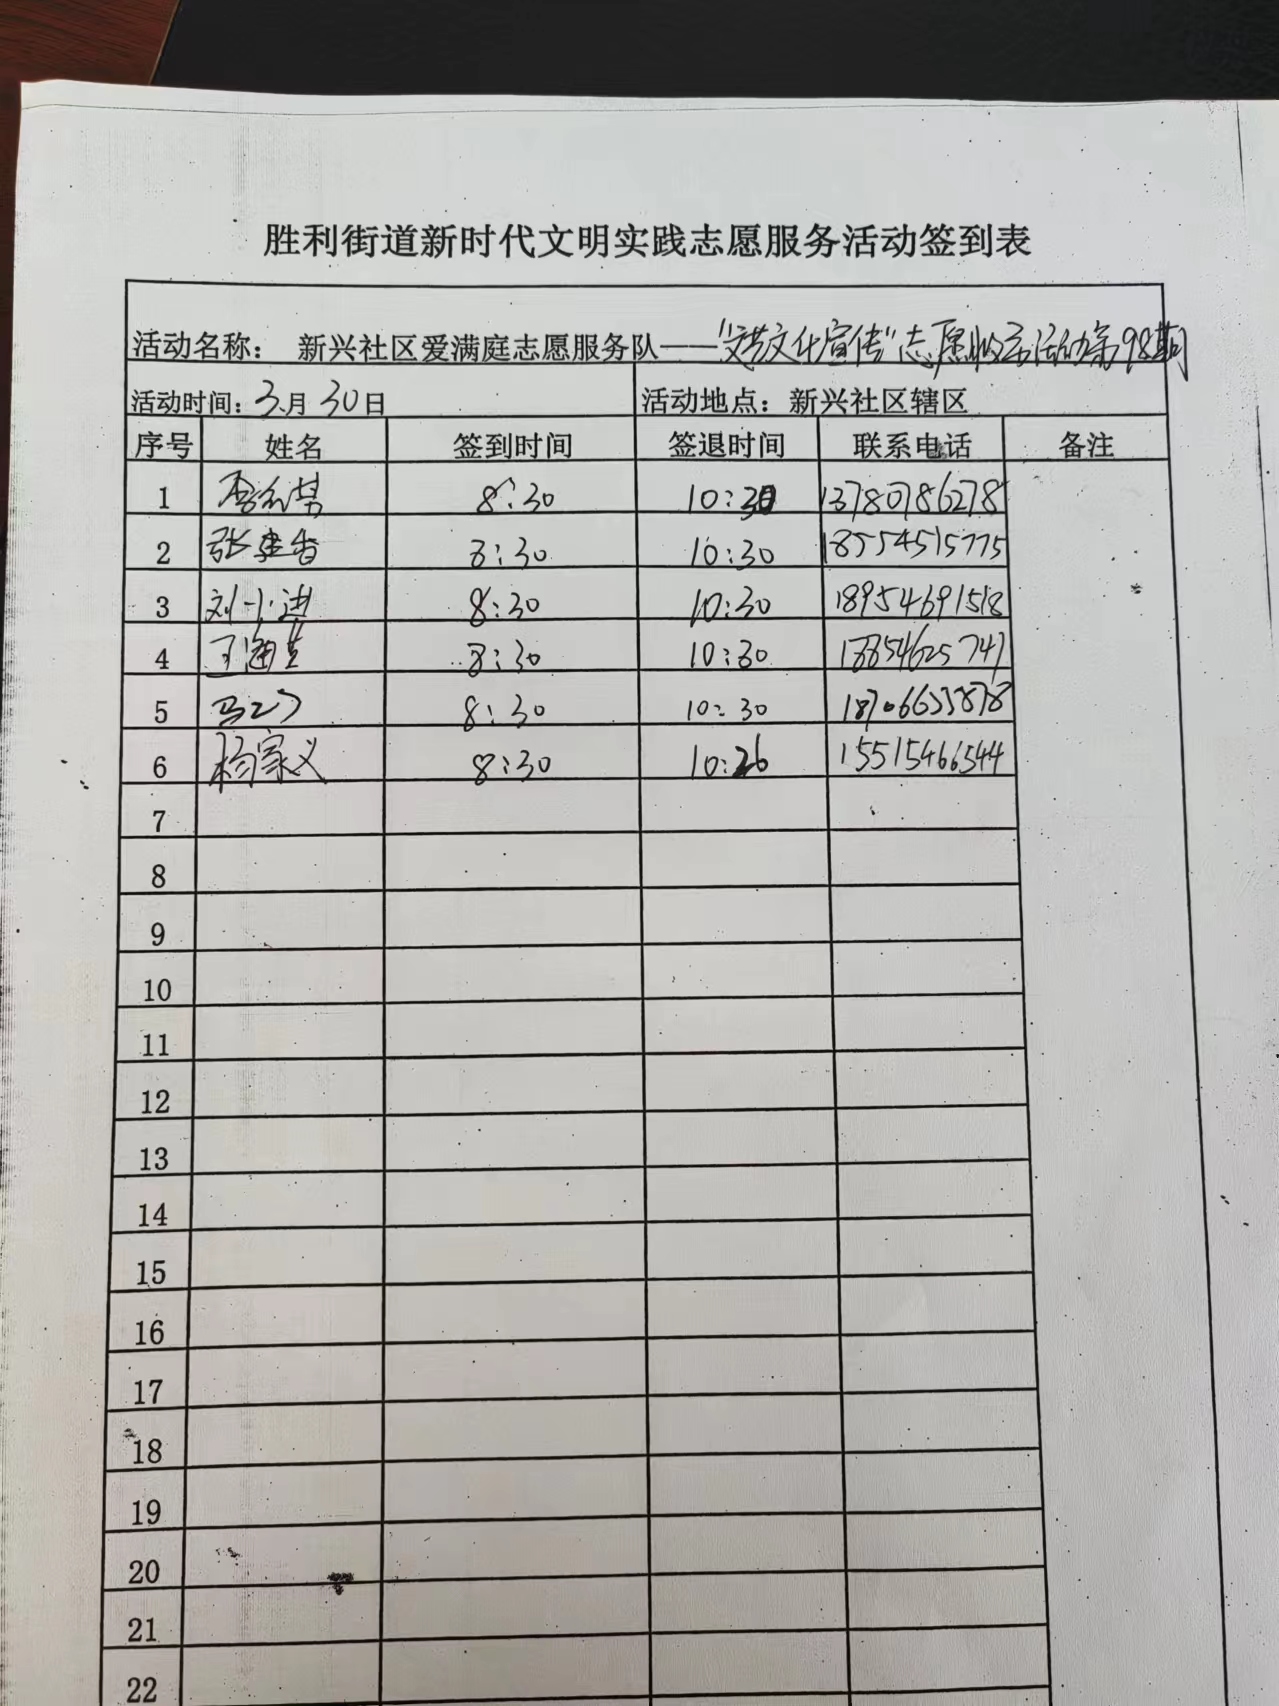 胜利街道新时代文明实践志愿服务活动签到表
活动名称： 新兴社区爱满庭志愿服务队——“文艺文化宣传”志愿服务活动第98期
活动时间：3月30日 活动地点：新兴社区辖区
序号 姓名 签到时间 签退时间 联系电话 备注
1 8:30 10:30 13780786278
2 张建香 8:30 10:30 18554515775
3 刘小进 8:30 10:30 18954691518
4 王海英 8:30 10:30 18854625747
5 8:30 10:30
6 杨家义 8:30 10:26 15515466544
7
8
9
10
11
12
13
14
15
16
17
18
19
20
21
22